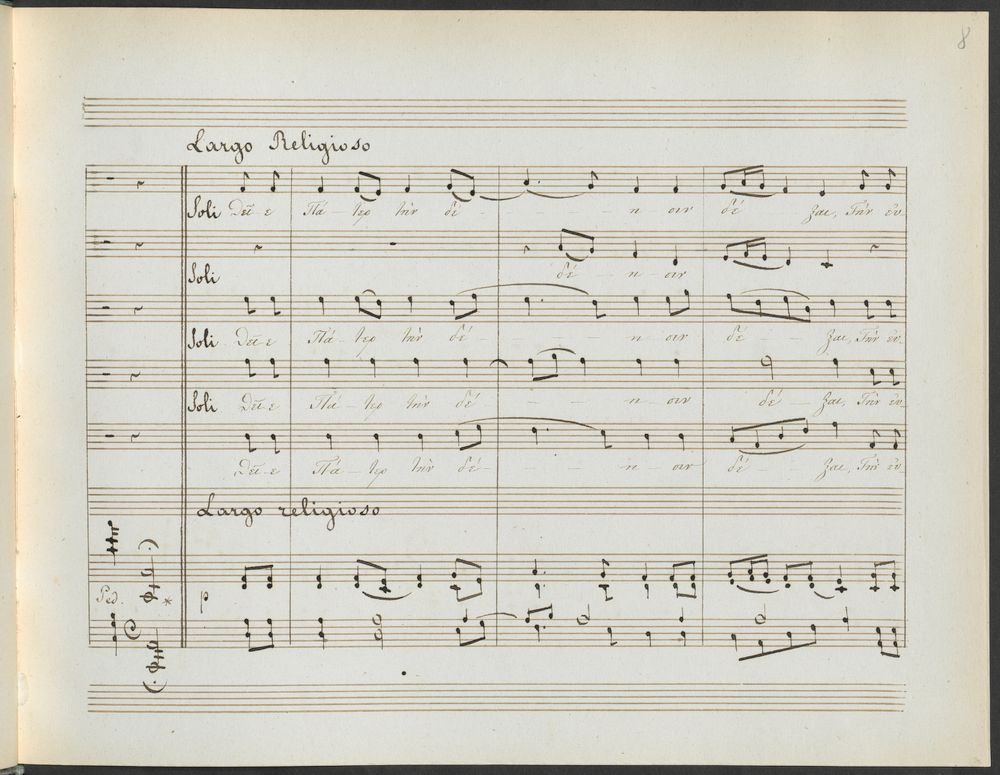 8
Largo Religioso
Soli Δεῦ-ε Πά-τερ τὴν δέ - - - - η - σιν δέ - - ξαι, Τὴν εὐ
Soli δέ - η - σιν
Soli Δεῦ-ε Πά-τερ τὴν δέ - - - - η - σιν δέ - - ξαι, Τὴν εὐ
Soli Δεῦ-ε Πά-τερ τὴν δέ - - - - η - σιν δέ - ξαι, Τὴν εὐ
Δεῦ-ε Πά-τερ τὴν δέ - - - - η - σιν δέ - - ξαι, Τὴν εὐ
Largo religioso
Ped. * p